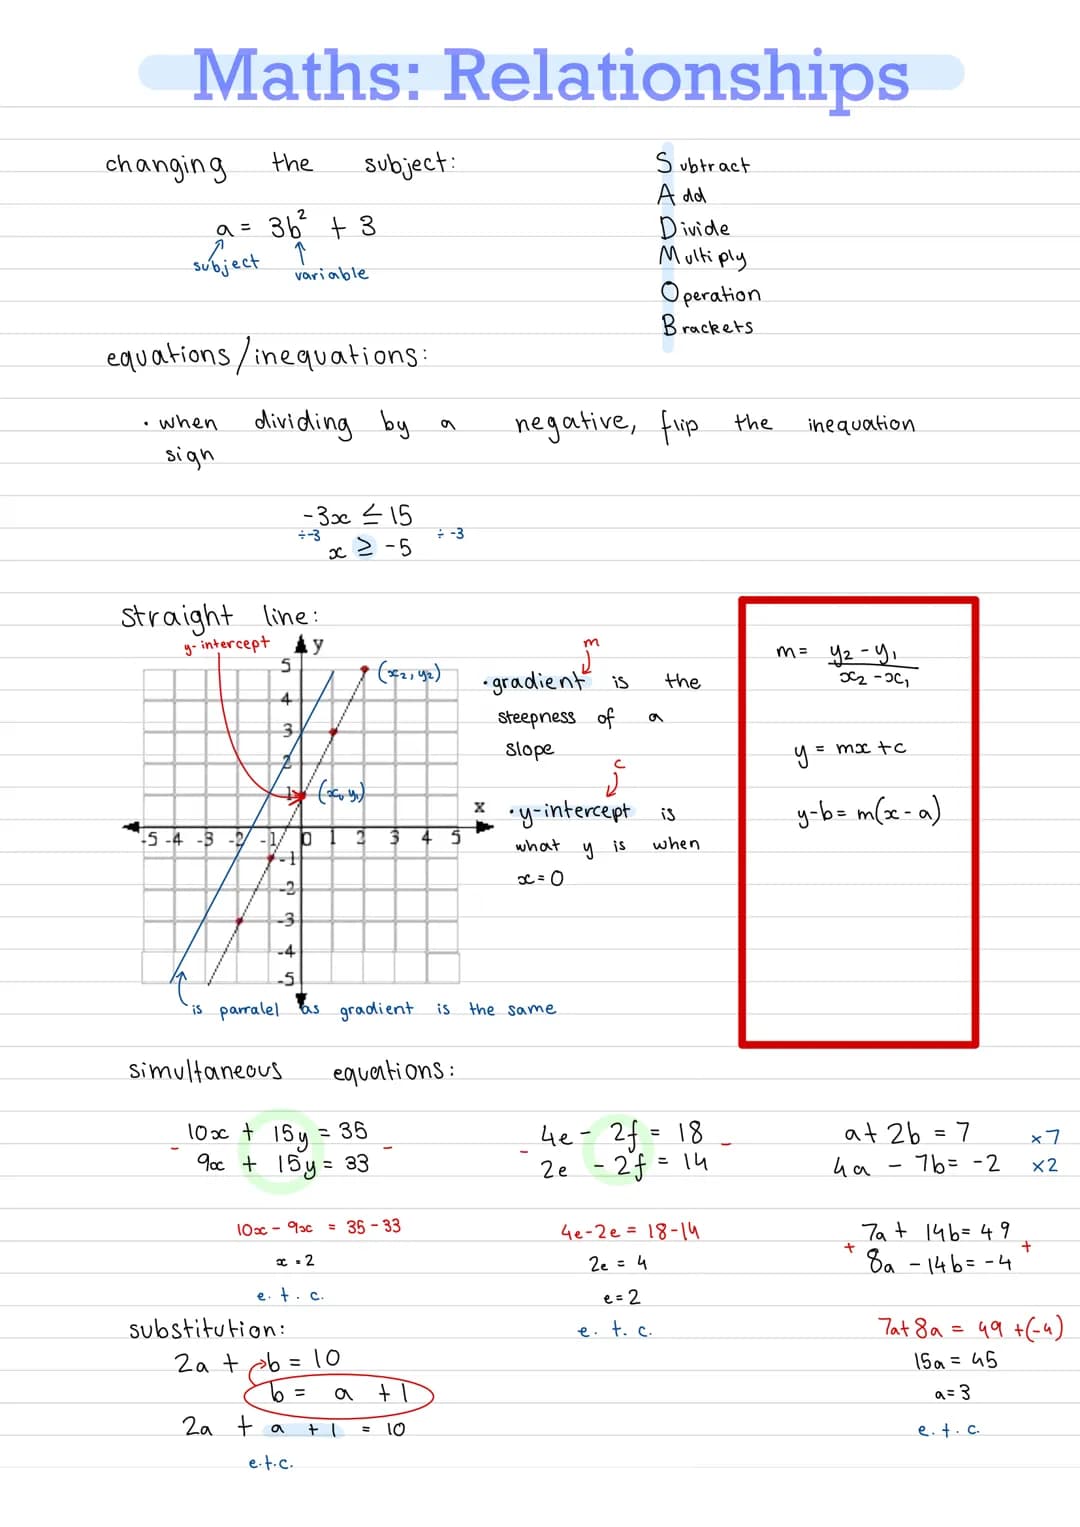 Maths: Relationships
changing the subject:
a = 3b² + 3
subject
variable
Subtract
Add
Divide
Multiply
Operation
Brackets
equations/inequations:
· when dividing by a negative, flip the inequation
sign
-3x ≤ 15
÷-3 ÷ -3
x ≥ -5
straight line:
y-intercept
y
5
4
3
2
1
(x₂, y₂)
(x₁, y₁)
x
-5 -4 -3 -2 -1 0 1 2 3 4 5
-1
-2
-3
-4
-5
is parralel as gradient is the same
m
· gradient is the
steepness of a
slope
c
· y-intercept is
what y is when
x = 0
m = y₂ - y₁ / x₂ - x₁
y = mx + c
y-b = m(x - a)
simultaneous equations:
10x + 15y = 35
- -
9x + 15y = 33
10x - 9x = 35 - 33
x = 2
e. t. c.
4e - 2f = 18
- -
2e - 2f = 14
4e-2e = 18-14
2e = 4
e = 2
e. t. c.
a + 2b = 7 ×7
4a - 7b = -2 ×2
7a + 14b = 49
+ +
8a - 14b = -4
7a + 8a = 49 + (-4)
15a = 45
a = 3
e. t. c.
substitution:
2a + b = 10
b = a + 1
2a + a + 1 = 10
e.t.c.